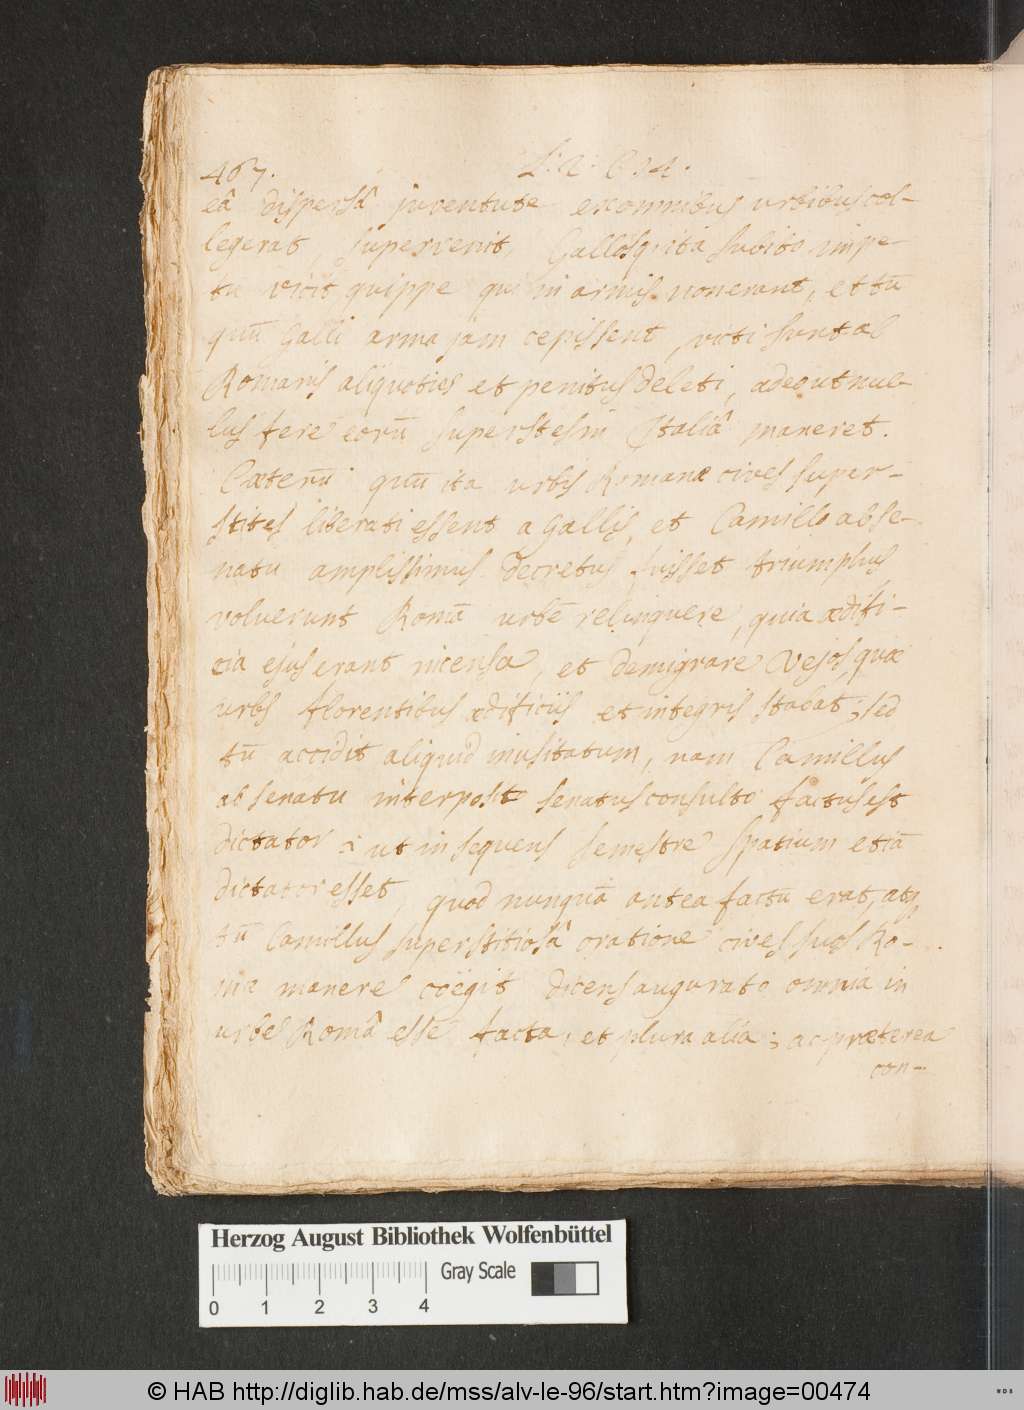 467. L: 2. C 34.
eâ dispersâ juventute ex omnibus urbibus col-
legerat, supervenit, Gallosq; ita subito impe-
tu vicit quippe qui in armis non erant, et tū
quū Galli arma jam cepissent, victi sunt ab
Romanis aliquoties et penitus deleti, adeo ut nul-
lus fere eorū superstes in Italiâ maneret.
Cæterū quū ita urbis Romanæ cives super-
stites liberati essent a Gallis, et Camillo a b se-
natu amplissimus decretus fuisset triumphus
voluerunt Romā urbē relinquere, quia ædifi-
cia ejus erant incensa, et demigrare Vejos quæ
urbs florentibus ædificiis et integris stabat; sed
tū accidit aliquid inusitatum, nam Camillus
ab senatu interposito senatus consulto factus est
dictator ut in sequens semestre spatium etiā
dictator esset, quod nunquā antea factū erat, atq;
tū Camillus superstitiosâ oratione cives suos Ro-
mæ manere coëgit dicens augurato omnia in
urbe Româ esse facta, et plura alia; ac præterea
con-
Herzog August Bibliothek Wolfenbüttel
Gray Scale
0 1 2 3 4
© HAB http://diglib.hab.de/mss/alv-le-96/start.htm?image=00474